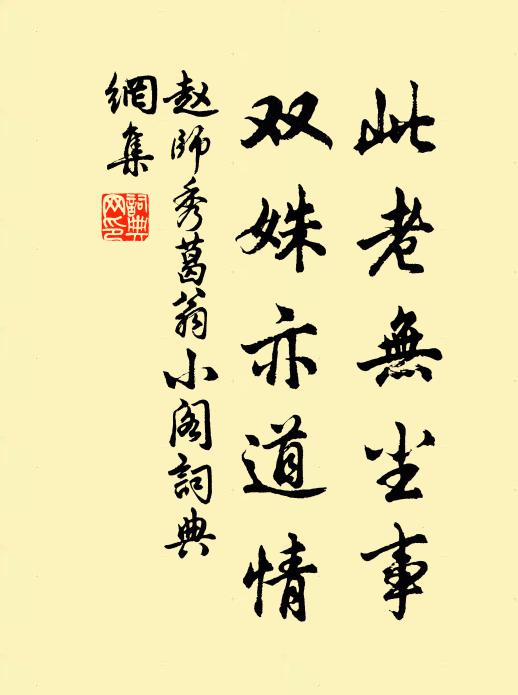 此老無尘事
双姝亦道情
赵師秀葛翁小阁詞典
網集
詞典
网印